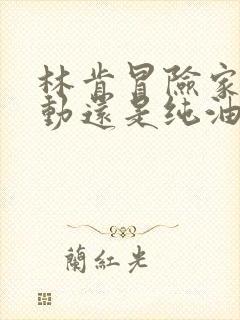 林肯冒險家
動還是纯油
蘭紅光